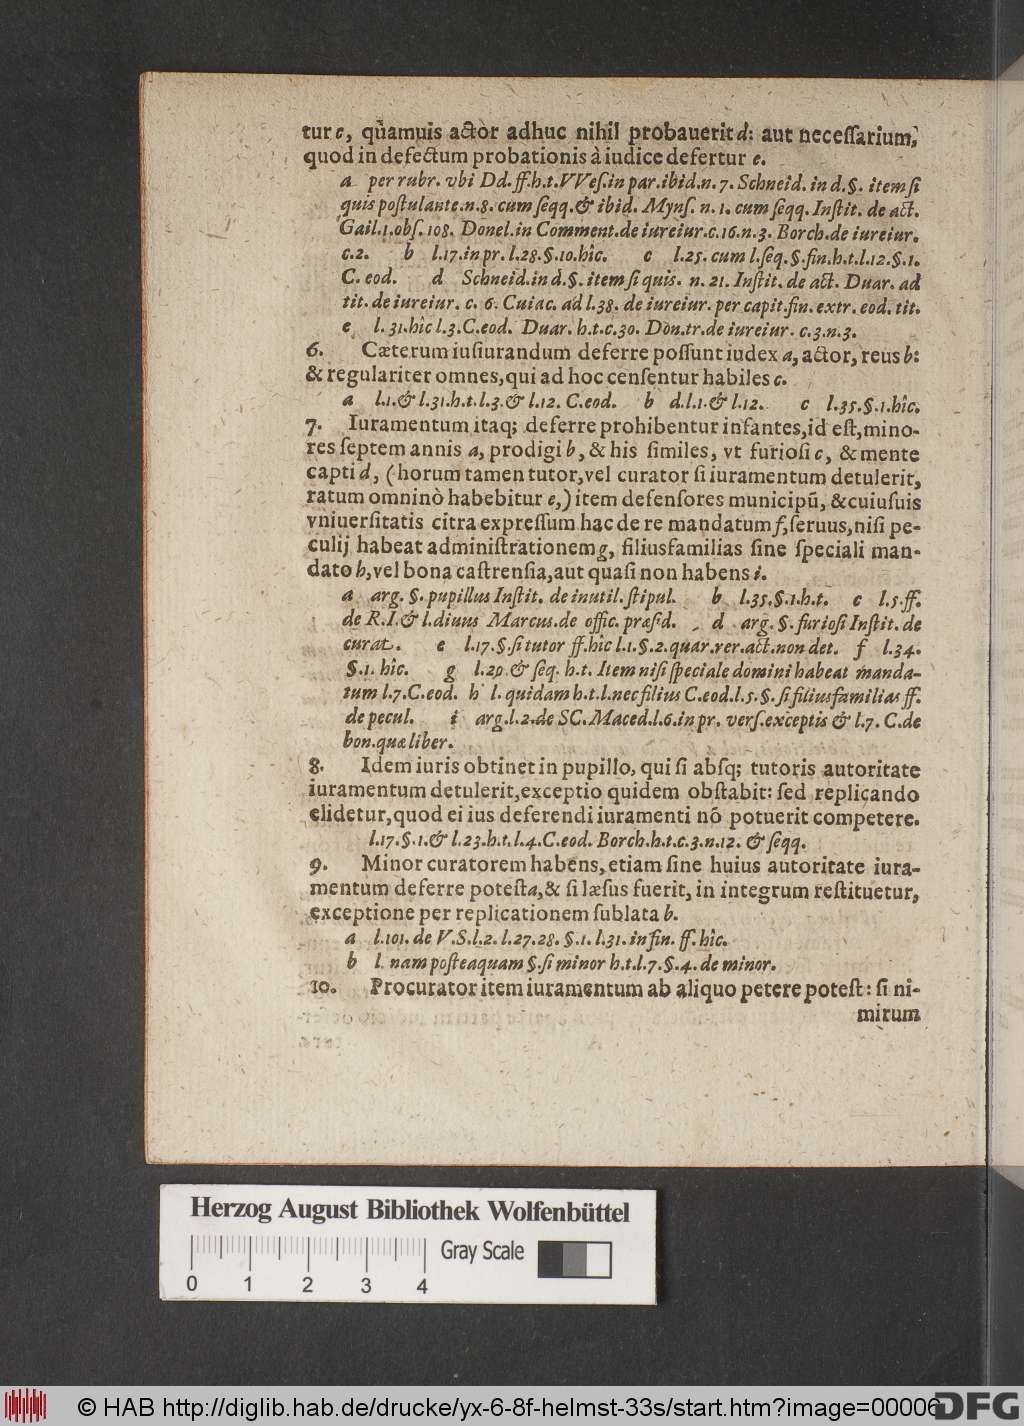 tur c, quamuis actòr adhuc nihil probauerit d: aut neceſſarium,
quod in defectum probationis à iudice defertur e.
a per rubr. vbi Dd. ff. h. t. VVeſ. in par. ibid. n. 7. Schneid. in d. §. item ſi
quis poſtulante. n. 8. cum ſeqq. & ibid. Mynſ. n. 1. cum ſeqq. Inſtit. de act.
Gail. 1. obſ. 108. Donel. in Comment. de iureiur. c. 16. n. 3. Borch. de iureiur.
c. 2. b l. 17. in pr. l. 28. §. 10. hîc. c l. 25. cum l. ſeq. §. fin. h. t. l. 12. §. 1.
C. eod. d Schneid. in d. §. item ſi quis. n. 21. Inſtit. de act. Duar. ad
tit. de iureiur. c. 6. Cuiac. ad l. 38. de iureiur. per capit. fin. extr. eod. tit.
e l. 31. hîc l. 3. C. eod. Duar. h. t. c. 30. Don. tr. de iureiur. c. 3. n. 3.
6. Cæterum iuſiurandum deferre poſſunt iudex a, actor, reus b:
& regulariter omnes, qui ad hoc cenſentur habiles c.
a l. 1. & l. 31. h. t. l. 3. & l. 12. C. eod. b d. l. 1. & l. 12. c l. 35. §. 1. hîc.
7. Iuramentum itaq; deferre prohibentur infantes, id eſt, mino-
res ſeptem annis a, prodigi b, & his ſimiles, vt furioſi c, & mente
capti d, (horum tamen tutor, vel curator ſi iuramentum detulerit,
ratum omninò habebitur e,) item defenſores municipū, & cuiuſuis
vniuerſitatis citra expreſſum hac de re mandatum f, ſeruus, niſi pe-
culij habeat adminiſtrationem g, filiusfamilias ſine ſpeciali man-
dato h, vel bona caſtrenſia, aut quaſi non habens i.
a arg. §. pupillus Inſtit. de inutil. ſtipul. b l. 35. §. 1. h. t. c l. 5. ff.
de R. I. & l. diuus Marcus. de offic. præſid. d arg. §. furioſi Inſtit. de
curat. e l. 17. §. ſi tutor ff. hîc l. 1. §. 2. quar. rer. act. non det. f l. 34.
§. 1. hîc. g l. 20. & ſeq. h. t. Item niſi ſpeciale domini habeat manda-
tum l. 7. C. eod. h l. quidam h. t. l. nec filius C. eod. l. 5. §. ſi filiusfamilias ff.
de pecul. i arg. l. 2. de SC. Maced. l. 6. in pr. verſ. exceptis & l. 7. C. de
bon. quæ liber.
8. Idem iuris obtinet in pupillo, qui ſi abſq; tutoris autoritate
iuramentum detulerit, exceptio quidem obſtabit: ſed replicando
elidetur, quod ei ius deferendi iuramenti nō potuerit competere.
l. 17. §. 1. & l. 23. h. t. l. 4. C. eod. Borch. h. t. c. 3. n. 12. & ſeqq.
9. Minor curatorem habens, etiam ſine huius autoritate iura-
mentum deferre poteſt a, & ſi læſus fuerit, in integrum reſtituetur,
exceptione per replicationem ſublata b.
a l. 101. de V. S. l. 2. l. 27. 28. §. 1. l. 31. in fin. ff. hîc.
b l. nam poſteaquam §. ſi minor h. t. l. 7. §. 4. de minor.
10. Procurator item iuramentum ab aliquo petere poteſt: ſi ni-
mirum
Herzog August Bibliothek Wolfenbüttel
0 1 2 3 4 Gray Scale
© HAB http://diglib.hab.de/drucke/yx-6-8f-helmst-33s/start.htm?image=00006 DFG